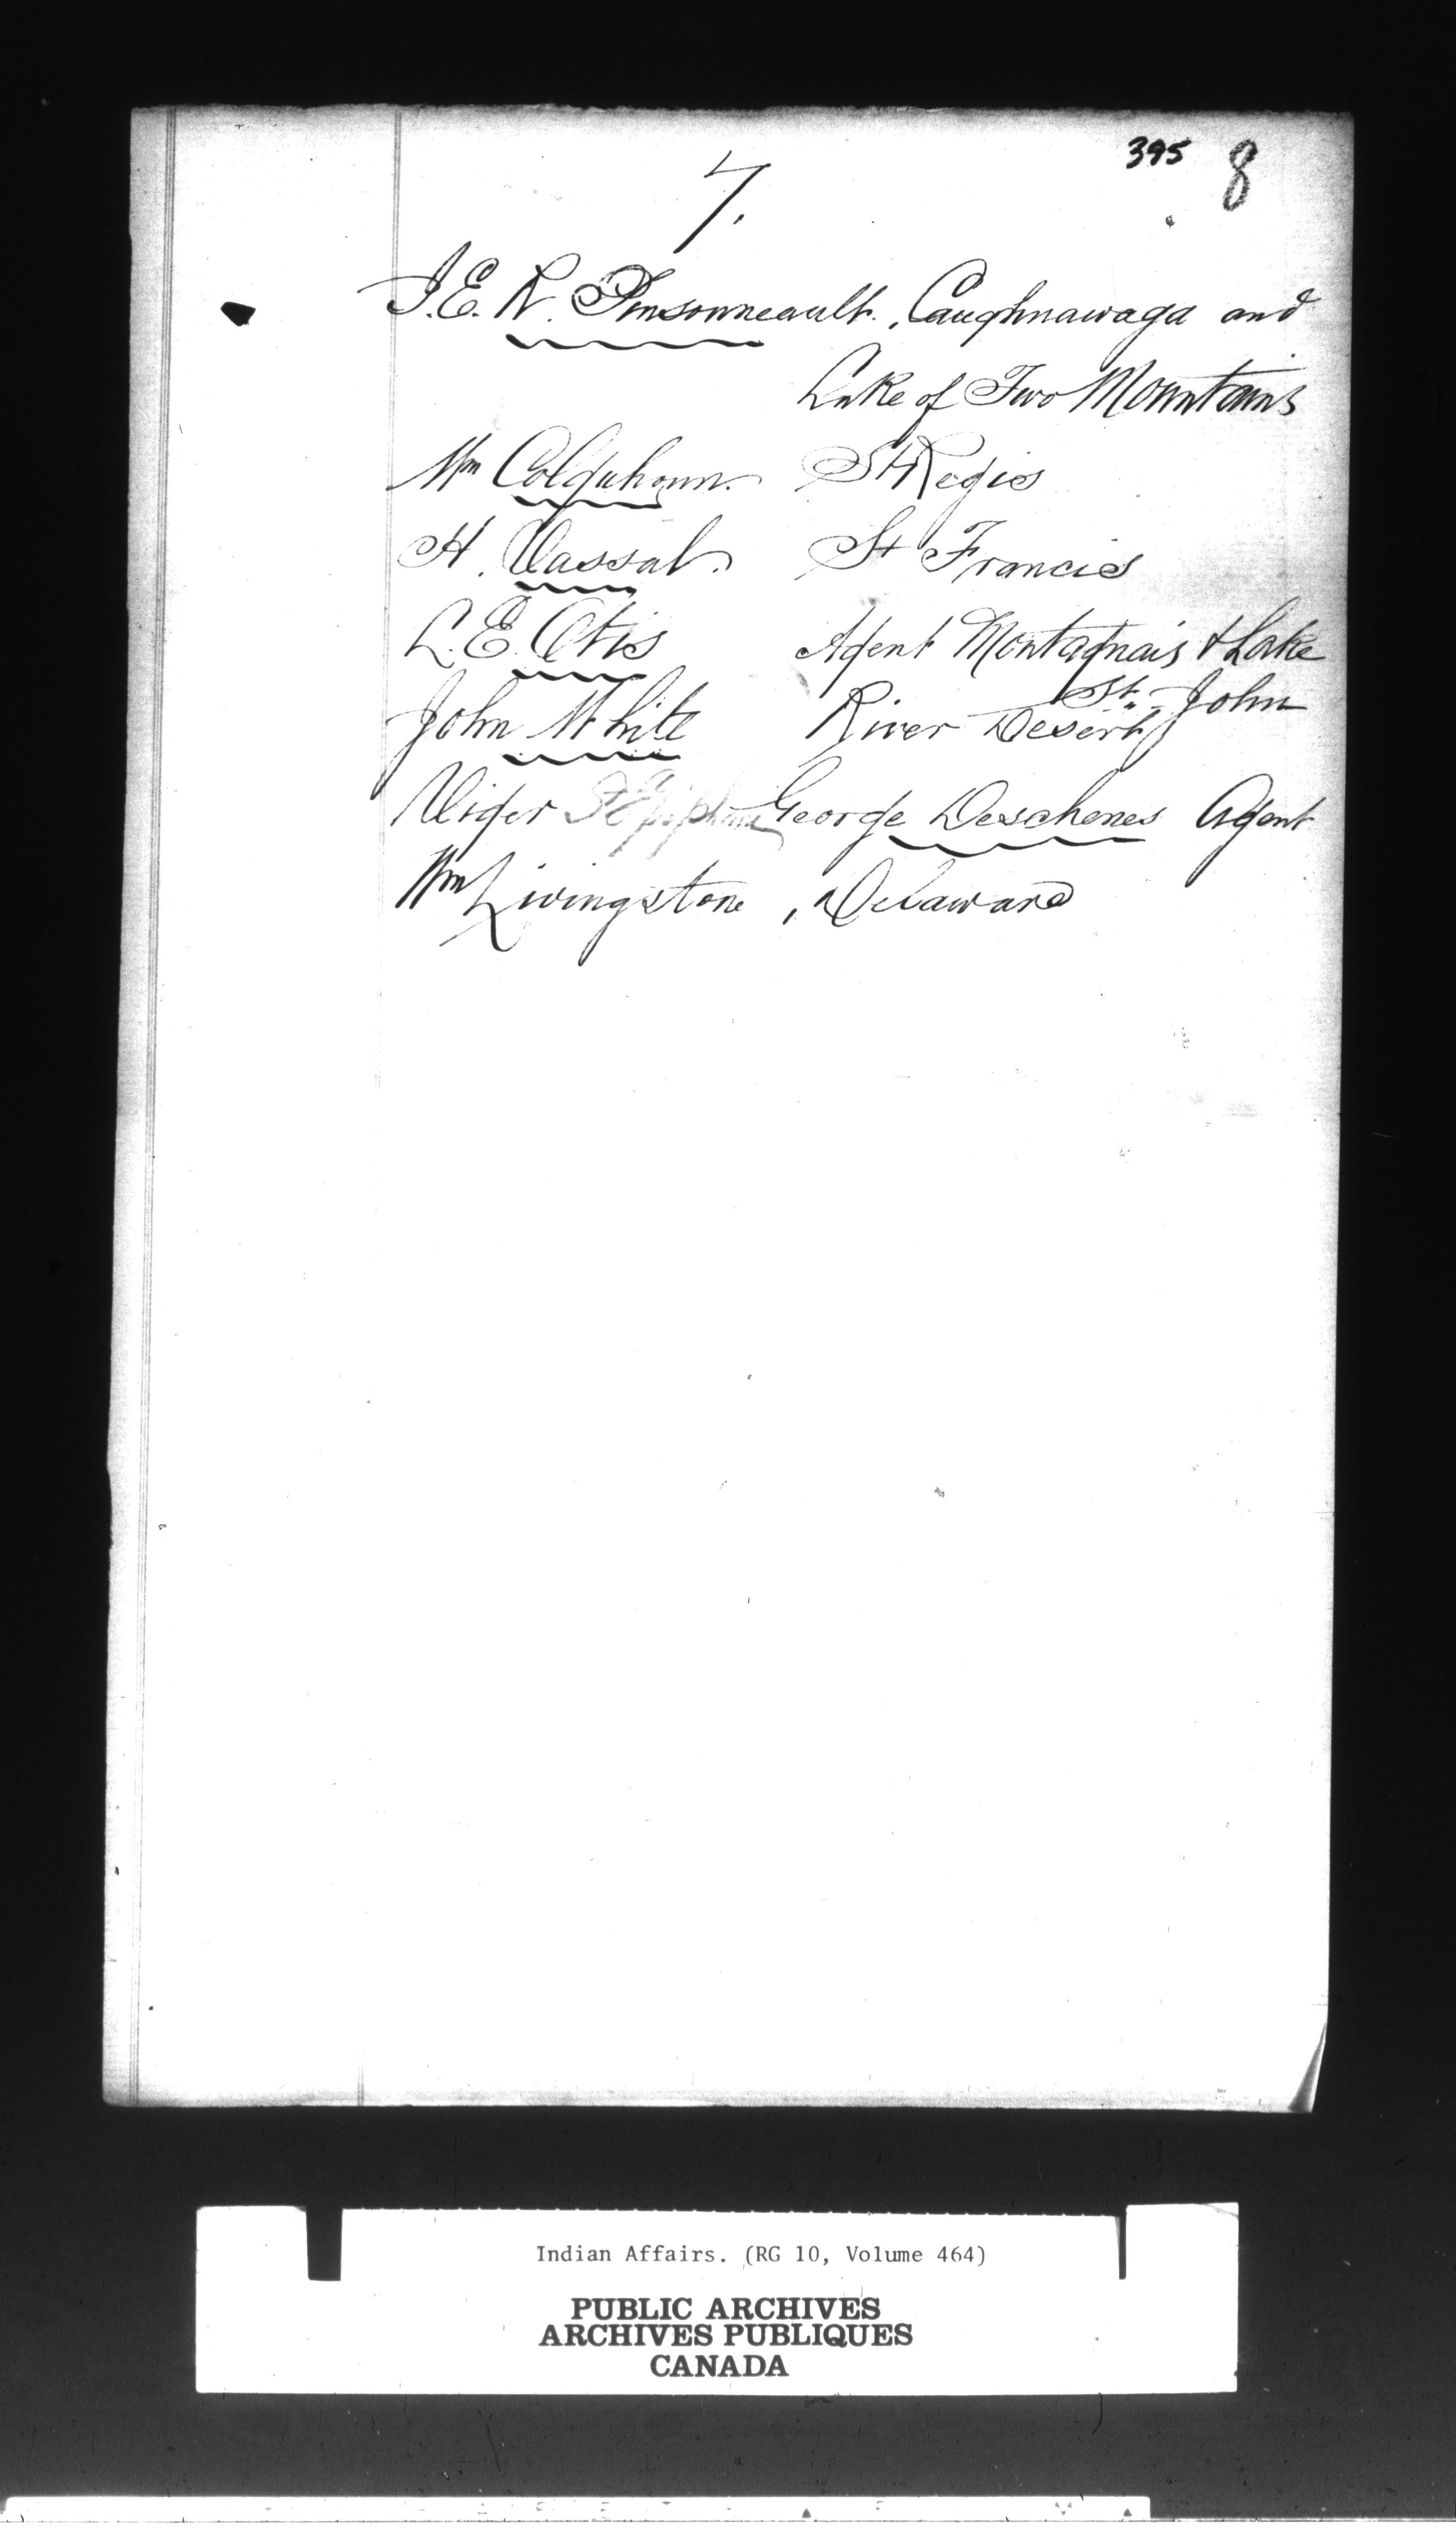 395 8
7.
J. E. R. Pinsonneault. , Caughnawaga and
Lake of Two Mountains
Wm Colquhoun. St Regis
H. Vassal. St Francis
L. E. Otis Agent Montagnais & Lake
St. John
John White River Desert
Viger George Deschenes Agent
Wm Livingstone , Delaware
Indian Affairs. (RG 10, Volume 464)
PUBLIC ARCHIVES
ARCHIVES PUBLIQUES
CANADA